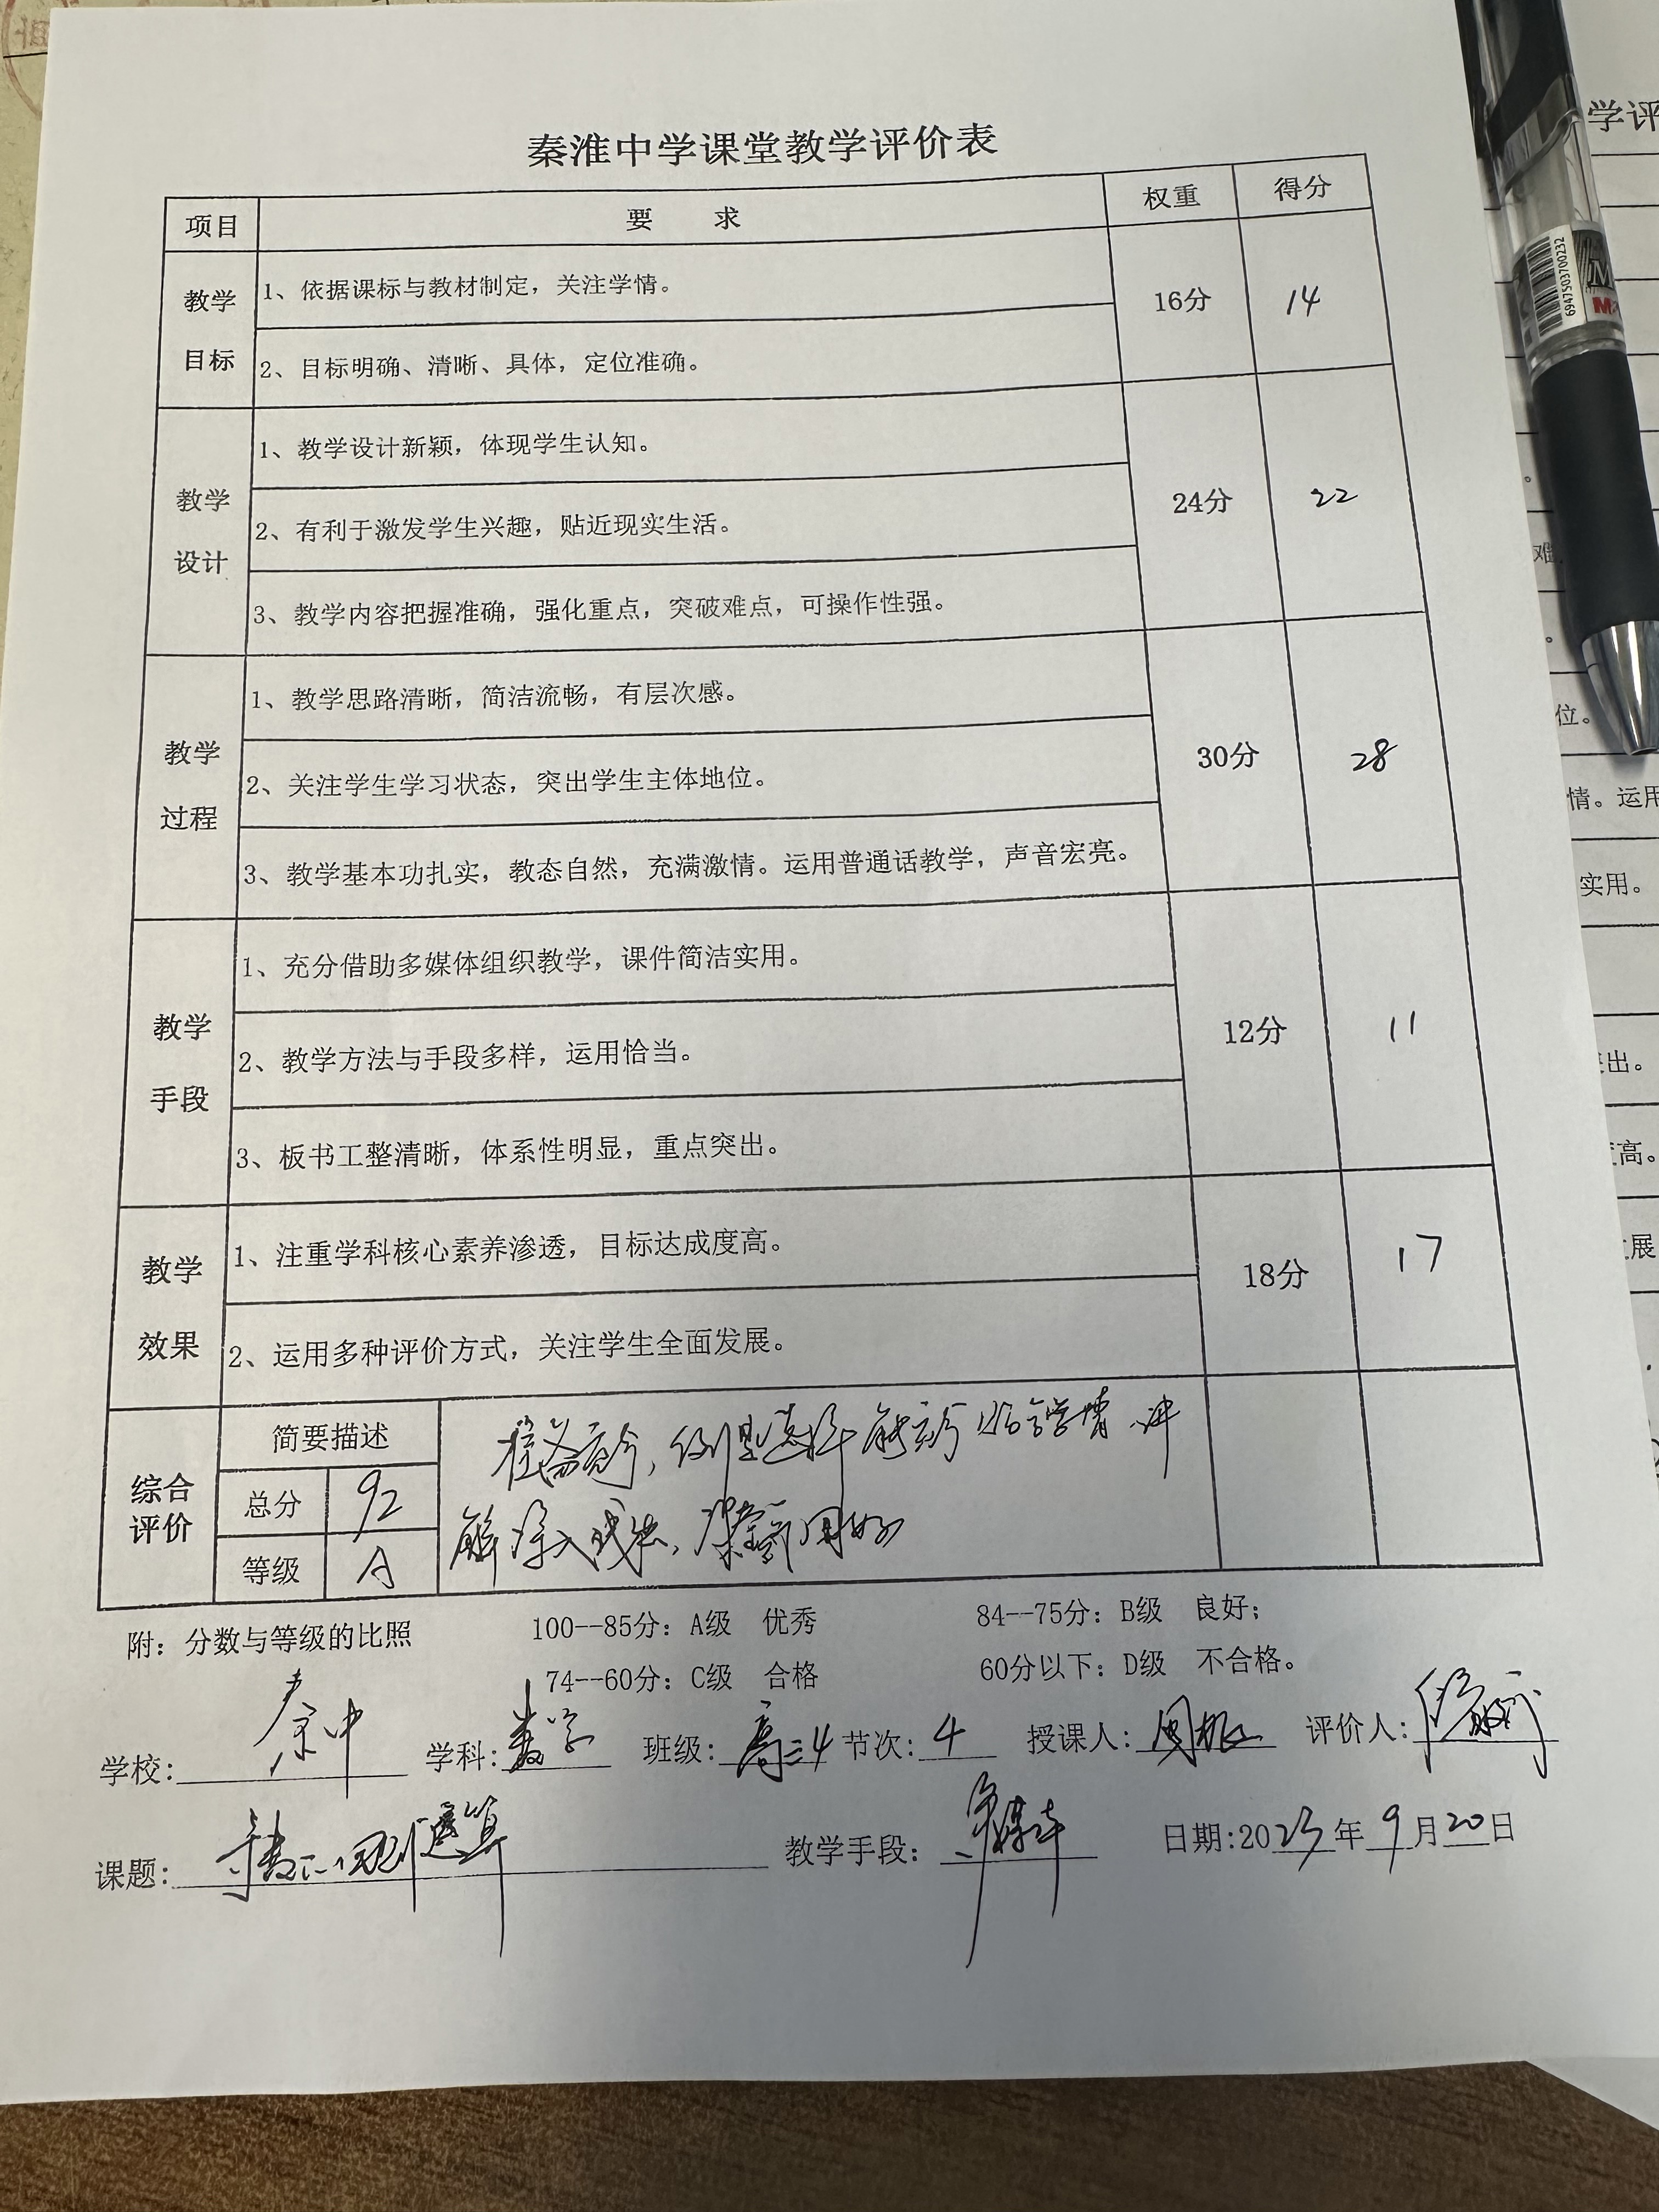 秦淮中学课堂教学评价表
项目 要 求 权重 得分
教学目标
1、依据课标与教材制定，关注学情。
2、目标明确、清晰、具体，定位准确。
16分 14
教学设计
1、教学设计新颖，体现学生认知。
2、有利于激发学生兴趣，贴近现实生活。
3、教学内容把握准确，强化重点，突破难点，可操作性强。
24分 22
教学过程
1、教学思路清晰，简洁流畅，有层次感。
2、关注学生学习状态，突出学生主体地位。
3、教学基本功扎实，教态自然，充满激情。运用普通话教学，声音宏亮。
30分 28
教学手段
1、充分借助多媒体组织教学，课件简洁实用。
2、教学方法与手段多样，运用恰当。
3、板书工整清晰，体系性明显，重点突出。
12分 11
教学效果
1、注重学科核心素养渗透，目标达成度高。
2、运用多种评价方式，关注学生全面发展。
18分 17
综合评价
简要描述
总分 92
等级 A
例题选择 学情 讲
解深入浅出，课堂
附：分数与等级的比照 100--85分：A级 优秀 84--75分：B级 良好；
74--60分：C级 合格 60分以下：D级 不合格。
学校：秦中 学科：数学 班级：高三4 节次：4 授课人：周 评价人：
课题：导数的四则运算 教学手段：多媒体 日期：2023年9月20日
学评
位。
情。运用
实用。
出。
高。
展
6947503700232